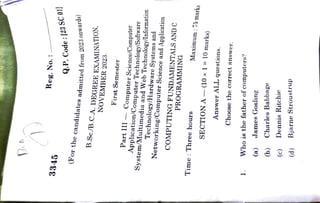 Reg. No. :
Q.P. Code : [22 SC 01]
3345
(For the candidates admitted from 2022 onwards)
B.Sc./B.C.A. DEGREE EXAMINATION,
NOVEMBER 2023.
First Semester
Part III — Computer Science/Computer
Application/Computer Technology/Software
System/Multimedia and Web Technology/Information
Technology/Hardware Systems and
Networking/Computer Science and Application
COMPUTING FUNDAMENTALS AND C
PROGRAMMING
Time : Three hours Maximum : 75 marks
SECTION A — (10 × 1 = 10 marks)
Answer ALL questions.
Choose the correct answer.
1. Who is the father of computers?
(a) James Gosling
(b) Charles Babbage
(c) Dennis Ritchie
(d) Bjarne Stroustrup